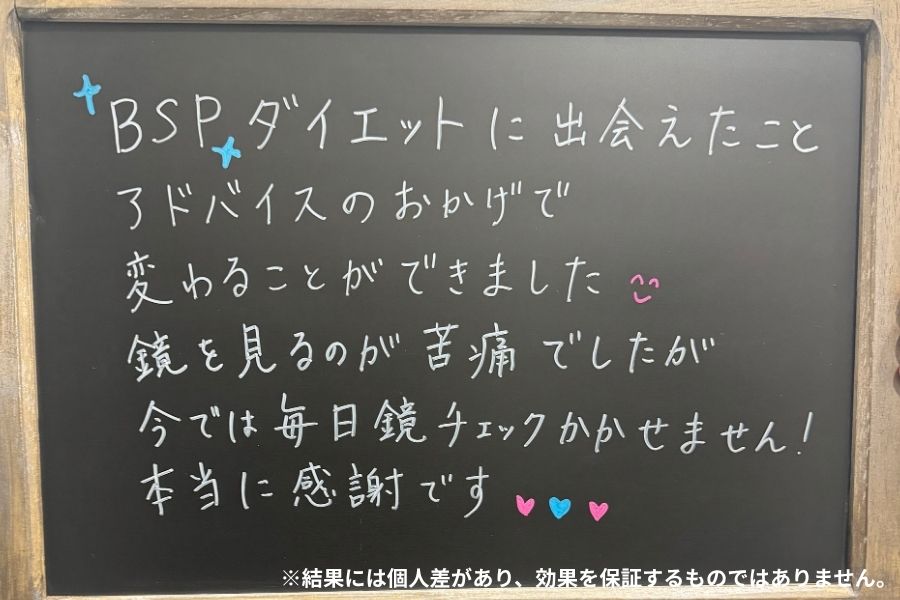 BSPダイエットに出会えたこと
アドバイスのおかげで
変わることができました
鏡を見るのが苦痛でしたが
今では毎日鏡チェックかかせません!
本当に感謝です
※結果には個人差があり、効果を保証するものではありません。